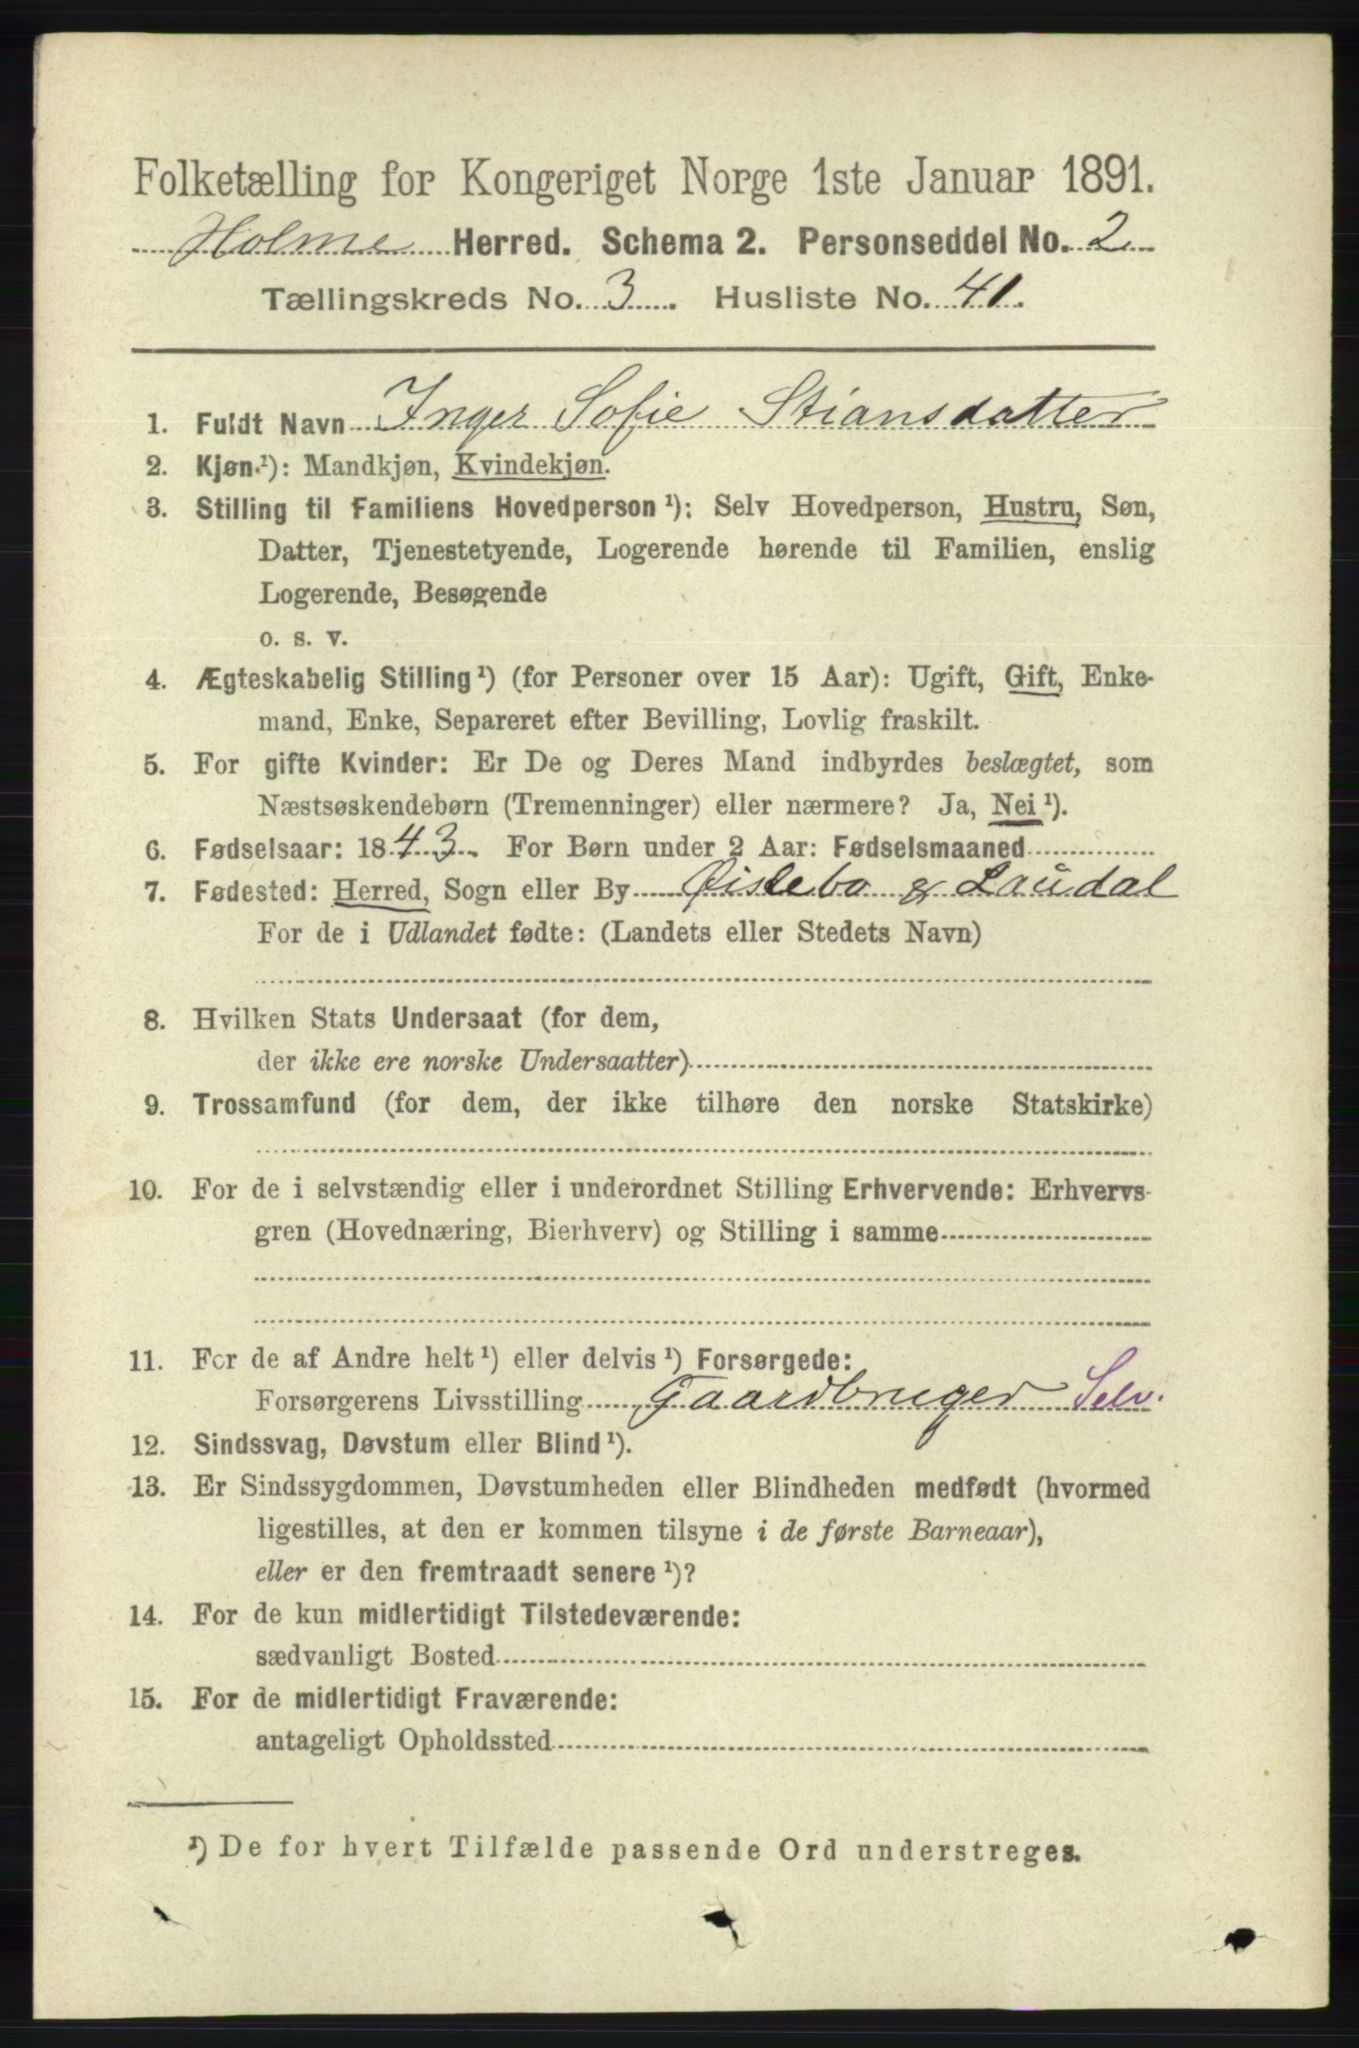 Folketælling for Kongeriget Norge 1ste Januar 1891.
Holme Herred. Schema 2. Personseddel No. 2
Tællingskreds No. 3. Husliste No. 41.
1. Fuldt Navn Inger Sofie Stiansdatter
2. Kjøn ¹): Mandkjøn, Kvindekjøn.
3. Stilling til Familiens Hovedperson ¹): Selv Hovedperson, Hustru, Søn,
Datter, Tjenestetyende, Logerende hørende til Familien, enslig
Logerende, Besøgende
o. s. v.
4. Ægteskabelig Stilling ¹) (for Personer over 15 Aar): Ugift, Gift, Enke-
mand, Enke, Separeret efter Bevilling, Lovlig fraskilt.
5. For gifte Kvinder: Er De og Deres Mand indbyrdes beslægtet, som
Næstsøskendebørn (Tremenninger) eller nærmere? Ja, Nei ¹).
6. Fødselsaar: 1843. For Børn under 2 Aar: Fødselsmaaned
7. Fødested: Herred, Sogn eller By Øislebø & Laudal
For de i Udlandet fødte: (Landets eller Stedets Navn)
8. Hvilken Stats Undersaat (for dem,
der ikke ere norske Undersaatter)
9. Trossamfund (for dem, der ikke tilhøre den norske Statskirke)
10. For de i selvstændig eller i underordnet Stilling Erhvervende: Erhvervs-
gren (Hovednæring, Bierhverv) og Stilling i samme
11. For de af Andre helt ¹) eller delvis ¹) Forsørgede:
Forsørgerens Livsstilling Gaardbruger Selv.
12. Sindssvag, Døvstum eller Blind ¹).
13. Er Sindssygdommen, Døvstumheden eller Blindheden medfødt (hvormed
ligestilles, at den er kommen tilsyne i de første Barneaar),
eller er den fremtraadt senere ¹)?
14. For de kun midlertidigt Tilstedeværende:
sædvanligt Bosted
15. For de midlertidigt Fraværende:
antageligt Opholdssted
¹) De for hvert Tilfælde passende Ord understreges.